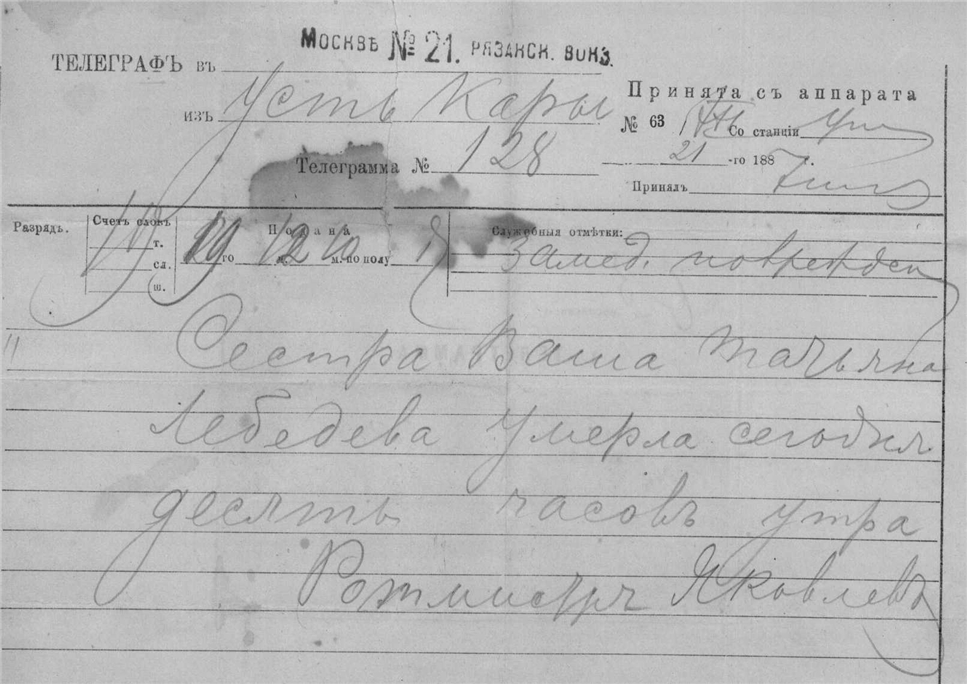 МОСКВѢ № 21. РЯЗАНСК. ВОКЗ.
ТЕЛЕГРАФЪ въ
изъ Усть Кары
Телеграмма № 128
Принята съ аппарата
№ 63 Со станціи
21 -го 1887 г.
Принялъ
Разрядъ.
Счетъ словъ
т.
сл.
ш.
Подана
19 го 12 ч. 10 м. по полу
Служебныя отмѣтки:
Замед. поврежден
Сестра Ваша Татьяна
Лебедева умерла сегодня
десять часовъ утра
Ротмистръ Яковлевъ